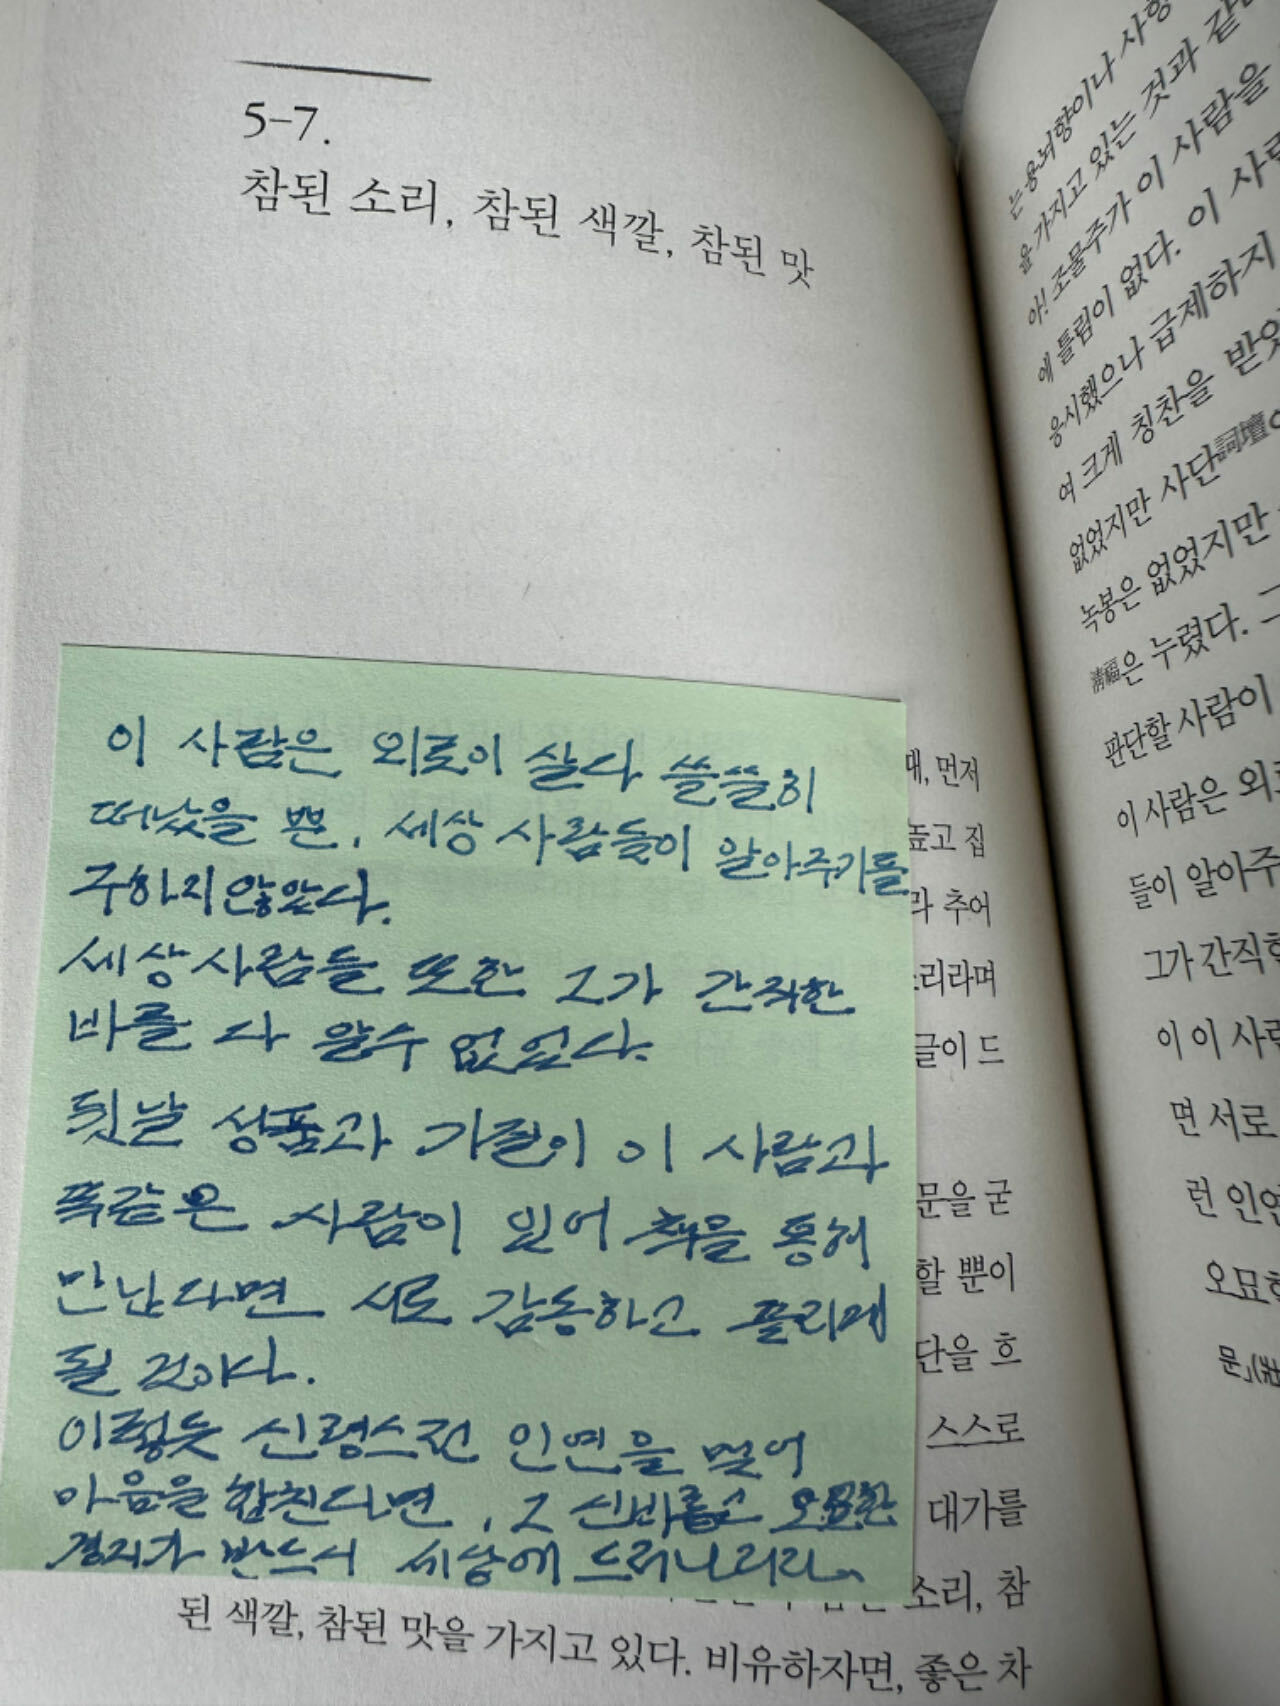 5-7.
참된 소리, 참된 색깔, 참된 맛
이 사람은 외로이 살다 쓸쓸히
떠났을 뿐, 세상 사람들이 알아주기를
구하지 않았다.
세상 사람들 또한 그가 간직한
바를 다 알수 없었다.
뒷날 성품과 기질이 이 사람과
똑같은 사람이 있어 책을 통해
만난다면 서로 감동하고 풀리게
될 것이다.
이렇듯 신령스런 인연을 맺어
마음을 합친다면, 그 신비롭고 오묘한
경지가 반드시 세상에 드러나리라.
때, 먼저
높고 집
라 추어
소리라며
글이 드
문을 굳
할 뿐이
단을 흐
스스로
대가를
소리, 참
된 색깔, 참된 맛을 가지고 있다. 비유하자면, 좋은 차
는 용뇌향이나 사향
을 가지고 있는 것과 같
아! 조물주가 이 사람을
에 틀림이 없다. 이 사람
응시했으나 급제하지
여 크게 칭찬을 받았
없었지만 사단詞壇
녹봉은 없었지만
淸福은 누렸다. 그
판단할 사람이
이 사람은 외로
들이 알아주
그가 간직한
이 이 사람
면 서로
런 인연
오묘한
문」